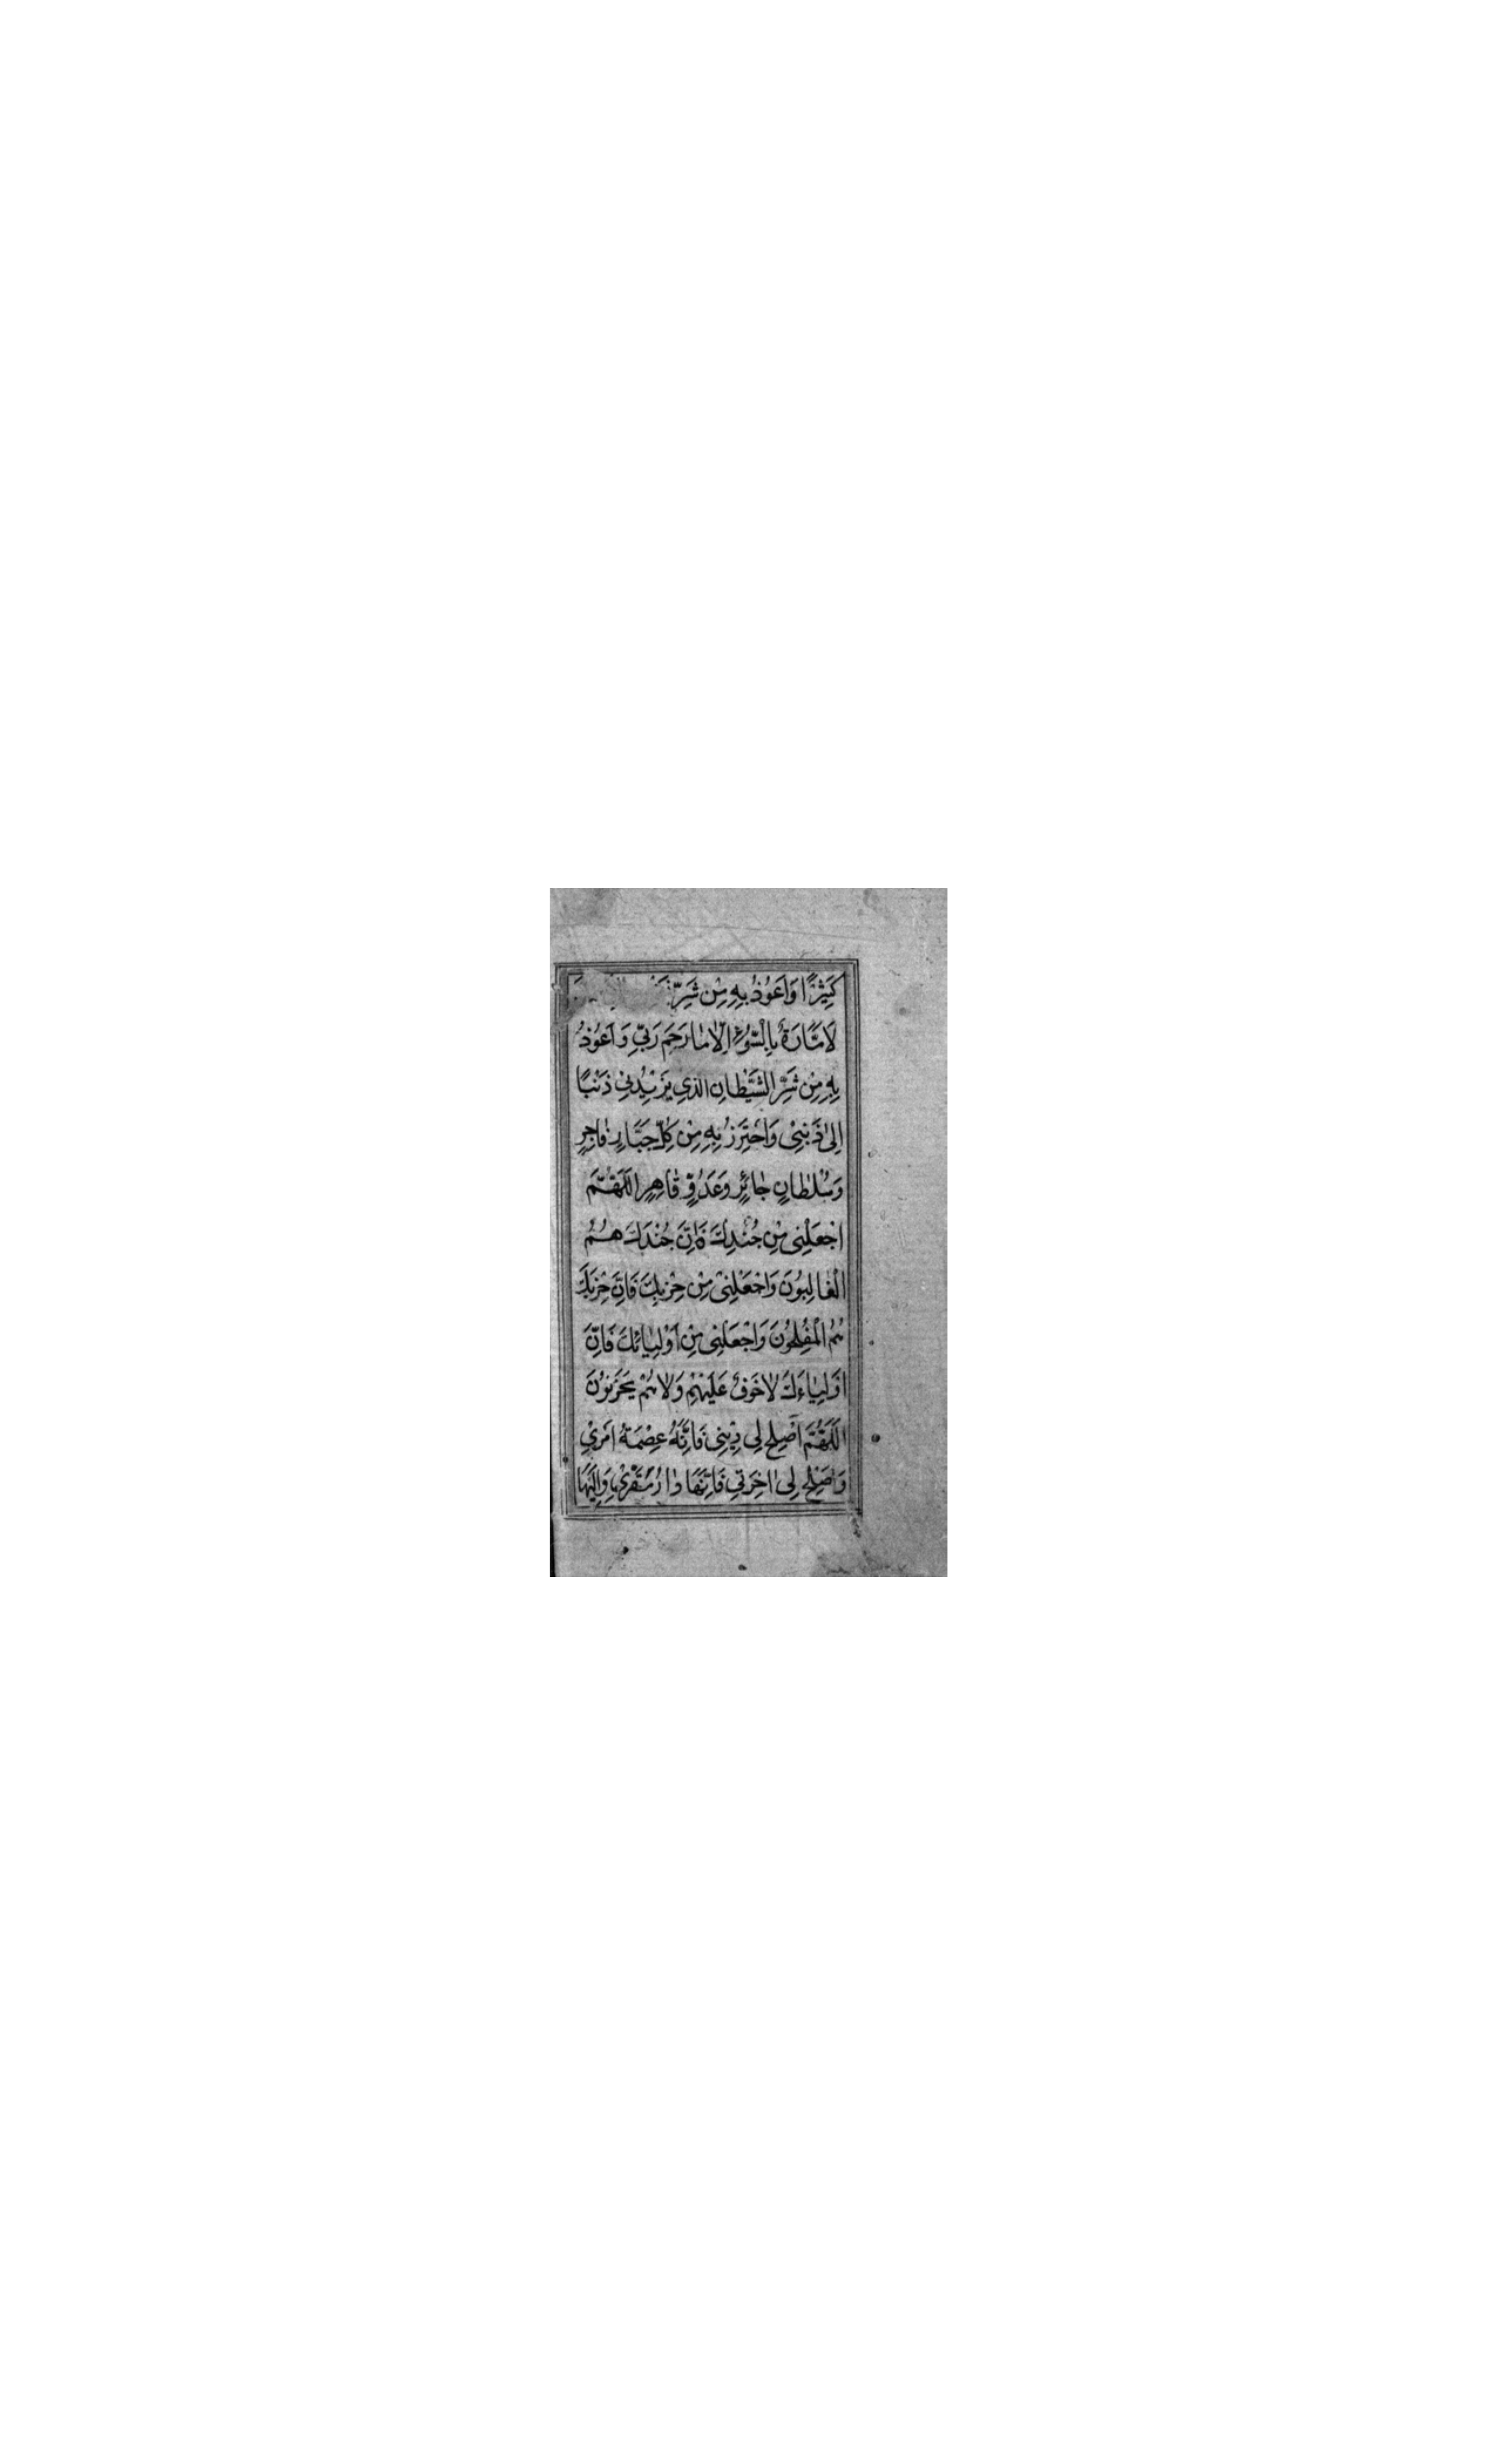 كَثِيرًا وَاَعُوذُ بِهِ مِن شَرِّ
لَاَمَّارَةٌ بِالسُّوءِ اِلَّا مَا رَحِمَ رَبِّي وَاَعُوذُ
بِهِ مِنْ شَرِّ الشَّيْطَانِ الذِي يَزِيْدُنِي ذَنْبًا
اِلىٰ ذَنْبِىْ وَاَحْتَرِزُ بِهِ مِنْ كُلِّ جَبَّارٍ فَاجِرٍ
وَسُلْطَانٍ جَائِرٍ وَعَدُوٍّ قَاهِرٍ اَللّهُمَّ
اجْعَلْنِى مِن جُنْدِكَ فَاِنَّ جُنْدَكَ هُمُ
الْغَالِبُونَ وَاجْعَلْنِىْ مِنْ حِزْبِكَ فَاِنَّ حِزْبَكَ
هُمُ الْمُفْلِحُونَ وَاجْعَلْنِى مِنْ اَوْلِيَائِكَ فَاِنَّ
اَوْلِيَاءَكَ لَاخَوْفٌ عَلَيْهِمْ وَلَا هُمْ يَحْزَنُوْنَ
اَللّهُمَّ اَصْلِحْ لِى دِيْنِى فَاِنَّهُ عِصْمَةُ اَمْرِيْ
وَاَصْلِحْ لِى اٰخِرَتِي فَاِنَّهَا دَارُ مَقَرِّىْ وَاِلَيْهَا